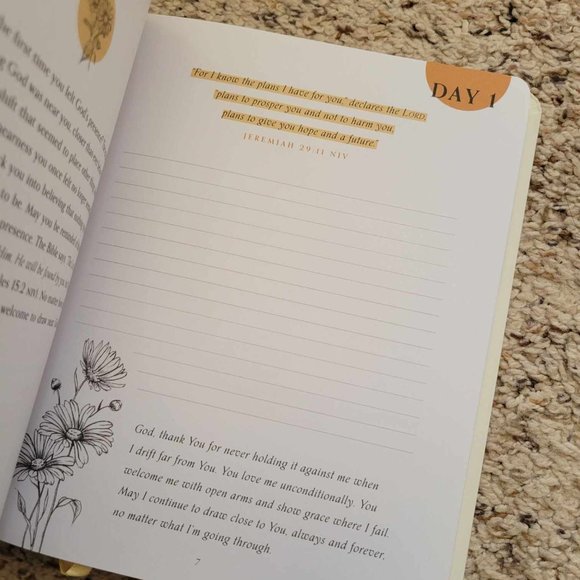 he first time you felt God's
g God was near you, closer than
shift that seemed to place
nearness you once felt no longer
k you into believing that
to be. May you be reminded
presence. The Bible says,
Him. He will be found by
les 15:2 NIV). No matter
welcome to draw near
DAY 1
"For I know the plans I have for you," declares the LORD,
"plans to prosper you and not to harm you,
plans to give you hope and a future."
JEREMIAH 29:11 NIV
God, thank You for never holding it against me when
I drift far from You. You love me unconditionally. You
welcome me with open arms and show grace where I fail.
May I continue to draw close to You, always and forever,
no matter what I'm going through.
7